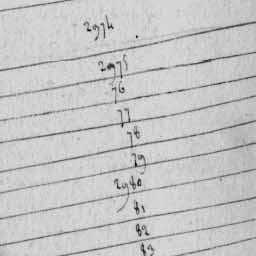 2974
2975
76
77
78
79
2980
81
82
83